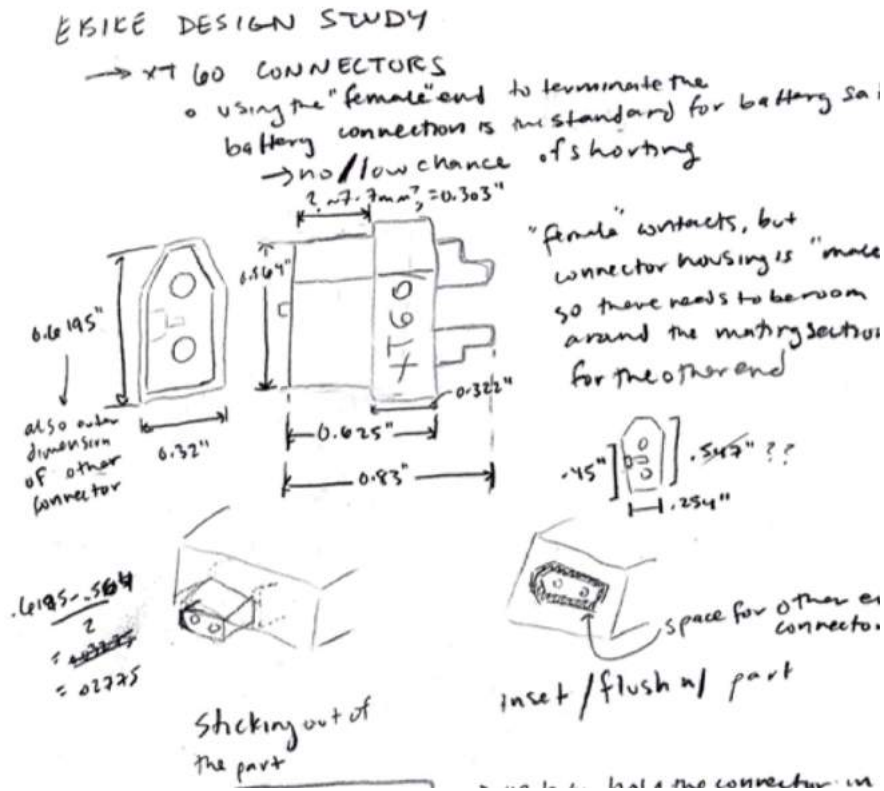 EBIKE DESIGN STUDY
→ XT 60 CONNECTORS
∘ using the "female" end to terminate the
battery connection is the standard for battery
→ no/low chance of shorting
? ~7.7mm?, = 0.303"
0.6195"
0.564"
XT60
0.322"
0.32"
0.625"
0.83"
also outer
dimension
of other
connector
"female" contacts, but
connector housing is "male
so there needs to be room
around the mating section
for the other end
.45"
.547" ??
.254"
.6195-.564
2
= .02775
sticking out of
the part
space for other
connector
inset/flush w/ part
hold the connector in